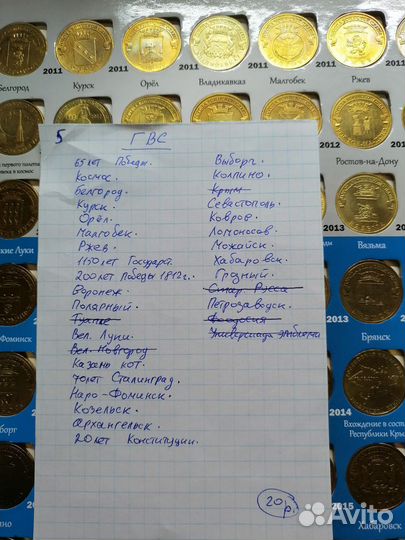 2011 2011 2011 2011 2011 2011
Белгород Курск Орёл Владикавказ Малгобек Ржев
5 ГВС
65 лет Победы.
Космос.
Белгород.
Курск.
Орёл.
Малгобек.
Ржев.
1150 лет Государст.
200 лет Победы 1812г.
Воронеж.
Полярный.
Туапсе
Вел. Луки.
Вел. Новгород
Казань кот.
70 лет Сталинград.
Наро-Фоминск.
Козельск.
Архангельск.
20 лет Конституции.
Выборг.
Колпино.
Крым
Севастополь.
Ковров.
Ломоносов.
Можайск.
Хабаровск.
Грозный.
Стар. Русса
Петрозаводск.
Феодосия
Универсиада эмблема
20 р.
первого полета
человека в космос
2012
Ростов-на-Дону
кие Луки
Вязьма
2013
-Фоминск
Брянск
2014
борг
Вхождение в сост
Республики Кры
2015
ино
Хабаровск
Avito